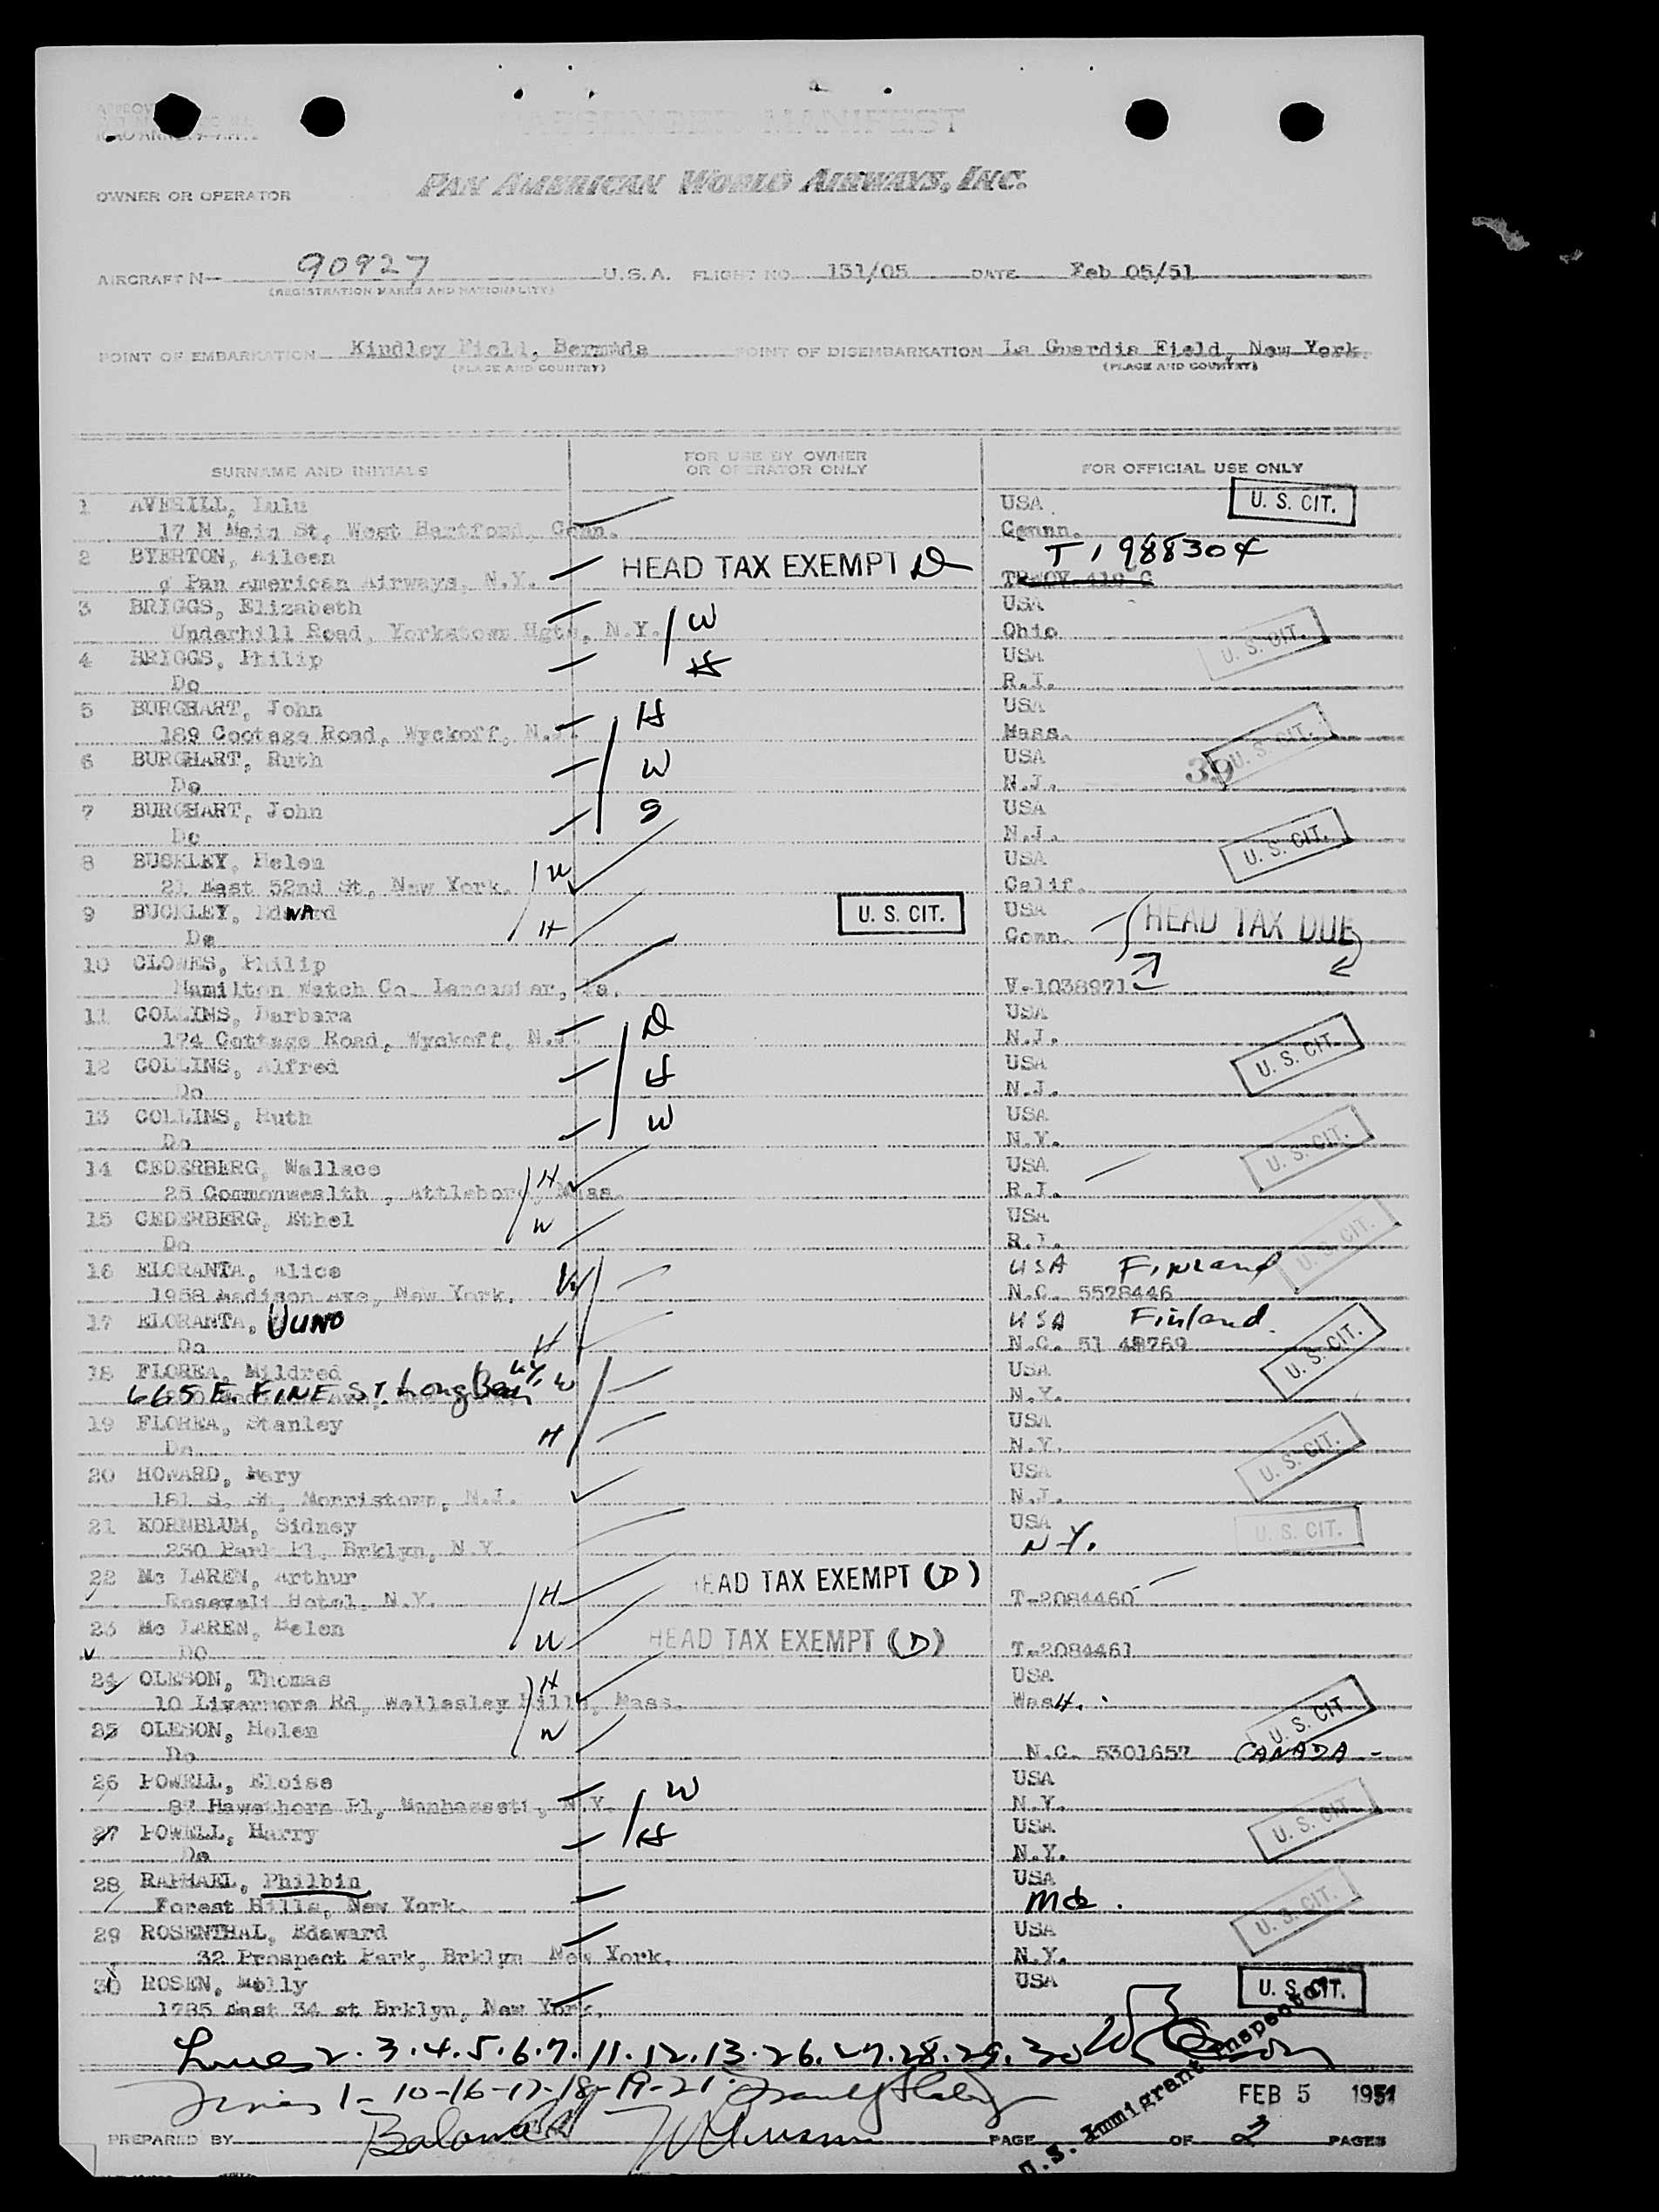 PASSENGER MANIFEST
OWNER OR OPERATOR PAN AMERICAN WORLD AIRWAYS, INC.
AIRCRAFT N— 90927 U.S.A. FLIGHT NO. 131/05 DATE Feb 05/51
(REGISTRATION MARKS AND NATIONALITY)
POINT OF EMBARKATION Kindley Field, Bermuda POINT OF DISEMBARKATION La Guardia Field, New York.
(PLACE AND COUNTRY) (PLACE AND COUNTRY)
SURNAME AND INITIALS FOR USE BY OWNER OR OPERATOR ONLY FOR OFFICIAL USE ONLY
1 AVERILL, Lulu USA U. S. CIT.
17 N Main St, West Hartford, Conn. Conn.
2 BYERTON, Aileen HEAD TAX EXEMPT D T1988304
c/ Pan American Airways, N.Y.
3 BRIGGS, Elizabeth W USA
Underhill Road, Yorkstown Hgts, N.Y. Ohio U. S. CIT.
4 BRIGGS, Philip H USA
Do R.I.
5 BURGHART, John H USA
189 Cootage Road, Wyckoff, N.J. Mass. U. S. CIT.
6 BURGHART, Ruth W USA 39
Do N.J.
7 BURGHART, John S USA
Do N.J. U. S. CIT.
8 BUSKLEY, Helen W USA
21 East 52nd St, New York. Calif.
9 BUCKLEY, Edward U. S. CIT. USA HEAD TAX DUE
Do H Conn.
10 CLOWES, Philip
Hamilton Watch Co. Lancaster, Pa. V-1038971
11 COLLINS, Barbara D USA
174 Cottage Road, Wyckoff, N.J. N.J. U. S. CIT.
12 COLLINS, Alfred H USA
Do N.J.
13 COLLINS, Ruth W USA
Do N.Y. U. S. CIT.
14 CEDERBERG, Wallace H USA
25 Commonwealth , Attleboro, Mass. R.I.
15 CEDERBERG, Ethel W USA
Do R.I. U. S. CIT.
16 ELORANTA, Alice W USA Finland
1958 Madison Ave, New York. N.C. 5528446
17 ELORANTA, UUNO USA Finland.
Do H N.C. 51 48769 U. S. CIT.
18 FLOREA, Mildred W USA
665 E. FINE ST. Long Beach N.Y. N.Y.
19 FLOREA, Stanley H USA
Do N.Y. U. S. CIT.
20 HOWARD, Mary USA
181 S. St, Morristown, N.J. N.J.
21 KORNBLUM, Sidney USA U. S. CIT.
250 Park Pl, Brklyn, N.Y. N.Y.
22 Mc LAREN, Arthur HEAD TAX EXEMPT (D)
Rosevelt Hotel, N.Y. H T-2084460
23 Mc LAREN, Helen HEAD TAX EXEMPT (D)
DO W T-2084461
24 OLESON, Thomas H USA
10 Livermore Rd, Wellesley Hills, Mass. Wash. U. S. CIT.
25 OLESON, Helen W
Do N.C. 5301657 CANADA -
26 POWELL, Eloise W USA
87 Hawethorn Pl, Manhassett, N.Y. N.Y. U. S. CIT.
27 POWELL, Harry H USA
Do N.Y.
28 RAPHAEL, Philbin USA
Forest Hills, New York. Md. U. S. CIT.
29 ROSENTHAL, Edaward USA
32 Prospect Park, Brklyn New York. N.Y.
30 ROSEN, Molly USA U. S. CIT.
1785 East 34 st Brklyn, New York.
Lines 2.3.4.5.6.7.11.12.13.26.27.28.29.30
Lines 1-10-16-17-18-19-21
U.S. Immigrant Inspector
FEB 5 1951
PREPARED BY PAGE OF 2 PAGES